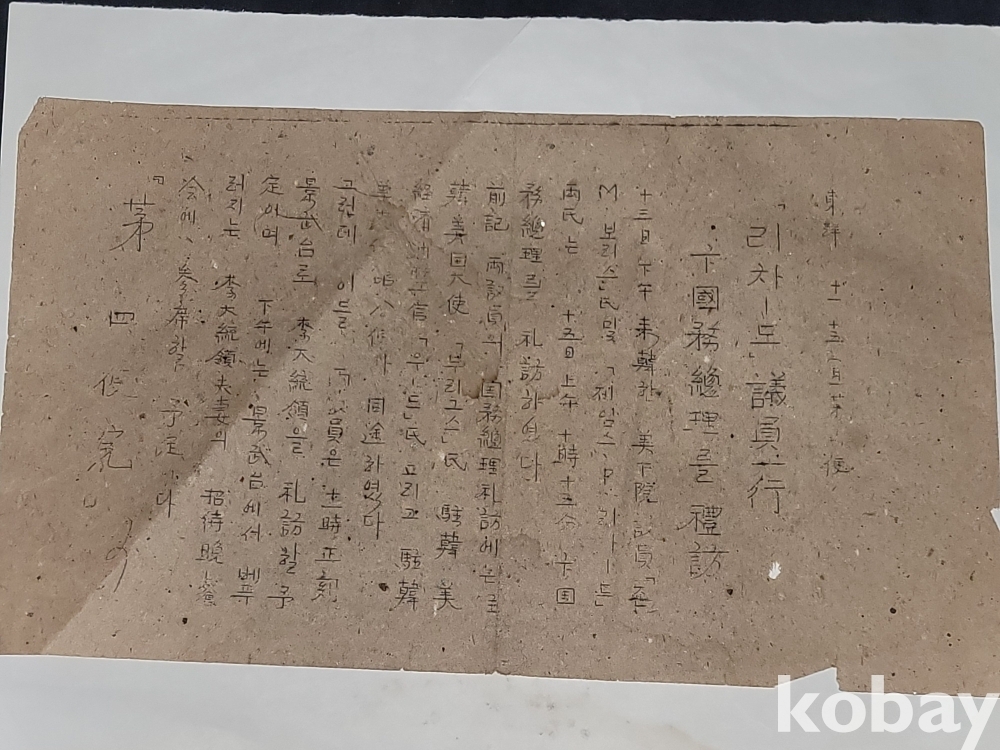 東洋 十一、十五、月 第 便
「리차ㅡ드」議員一行
卞國務總理를 禮訪
十三日 下午 來韓한 美下院 議員「죤
M 보리슨」氏및 「제임스 P 리차ㅡ드」
両氏는 十五日上午 十時十五分 卞国
務總理를 礼訪하였다
前記 両議員의 国務總理礼訪에는
韓美国大使 「부리그스」氏 駐韓 美
経済 官「우ㅡ드」氏 그리고 駐韓
美 八 가 同途하였다
그런데 이들 議員은 士時正刻
景武台로 李大統領을 礼訪할 予
定이며 下午에는 景武台에서 베푸
러지는 李大統領夫妻의 招待晩餐
会에 參席할 予定이다
「第四便完」
kobay